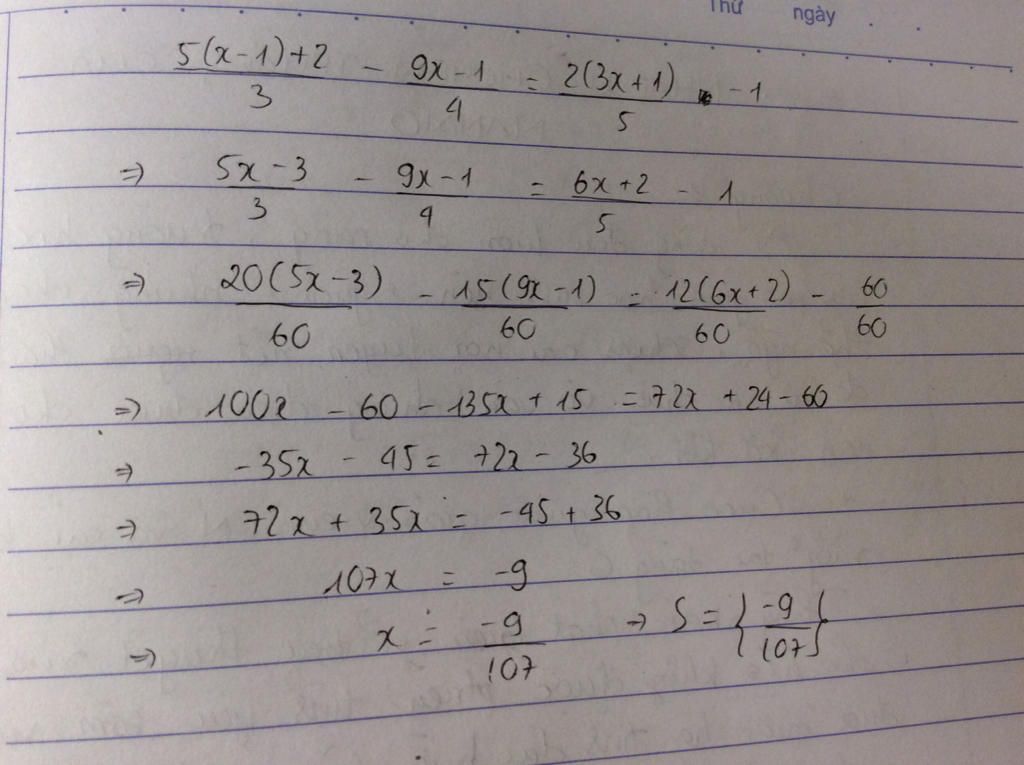 Thứ ngày . .
5(x-1)+2/3 - 9x-1/4 = 2(3x+1)/5 - 1
⇒ 5x-3/3 - 9x-1/4 = 6x+2/5 - 1
⇒ 20(5x-3)/60 - 15(9x-1)/60 = 12(6x+2)/60 - 60/60
⇒ 100x - 60 - 135x + 15 = 72x + 24 - 60
⇒ -35x - 45 = 72x - 36
⇒ 72x + 35x = -45 + 36
⇒ 107x = -9
⇒ x = -9/107 → S = {-9/107}